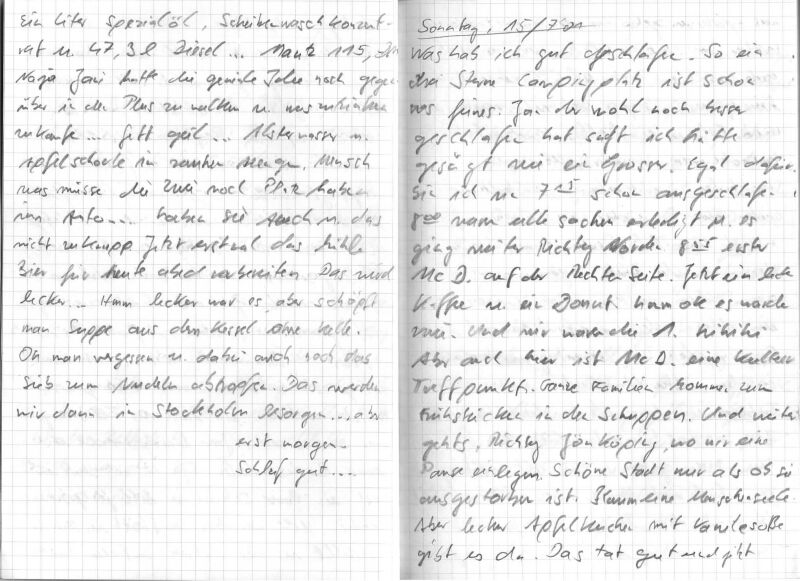 Ein Liter Spezialöl, Scheibenwaschkonzent-
rat u. 47,3 l Diesel... 115,
Naja Jani hatte die geniale Idee noch gegen
über in den Plus zu walten u. was zutrinken
zukaufe... Fett geil... Alsterwasser u.
Apfelschorle in rauhen Mengen. Mensch
was müsse die zwei noch Platz haben
im Auto... haben sie auch u. das
nicht zuknapp Jetzt erstmal das kühle
Bier für heute abend vorbereiten Das wird
lecker... Hmm lecker war es, aber schöpft
man Suppe aus dem Kessel ohne Kelle.
Oh man vergessen u. dabei auch noch das
Sieb zum Nudeln abtropfen. Das werden
wir dann in Stockholm besorgen... aber
erst morgen.
Schlaf gut...
Sonntag, 15/7 01
Was hab ich gut geschlafen. So ein
drei Sterne Campingplatz ist schon
was feines. Jan der wohl noch besser
geschlafen hat sagt ich hätte
gesägt wie ein Grosser. Egal dafür
bin ich um 7 15 schon ausgeschlafen.
8 00 waren alle sachen erledigt u. es
ging weiter Richtung Norden 8 55 erster
Mc D. auf der Rechten Seite. Jetzt ein
Kaffee u. ein Donut. es
Und wir waren die 1. hihihi
Aber auch hier ist Mc D. eine
Treffpunkt. Ganze Familien kommen zum
Frühstücken in den Schuppen. Und weiter
gehts, Richtung Jönköping, wo wir eine
Pause einlegen. Schöne Stadt nur als ob sie
ausgestorben ist. Kaum eine Menschenseele.
Aber lecker Apfelkuchen mit Vanillesoße
gibt es da. Das tat gut und